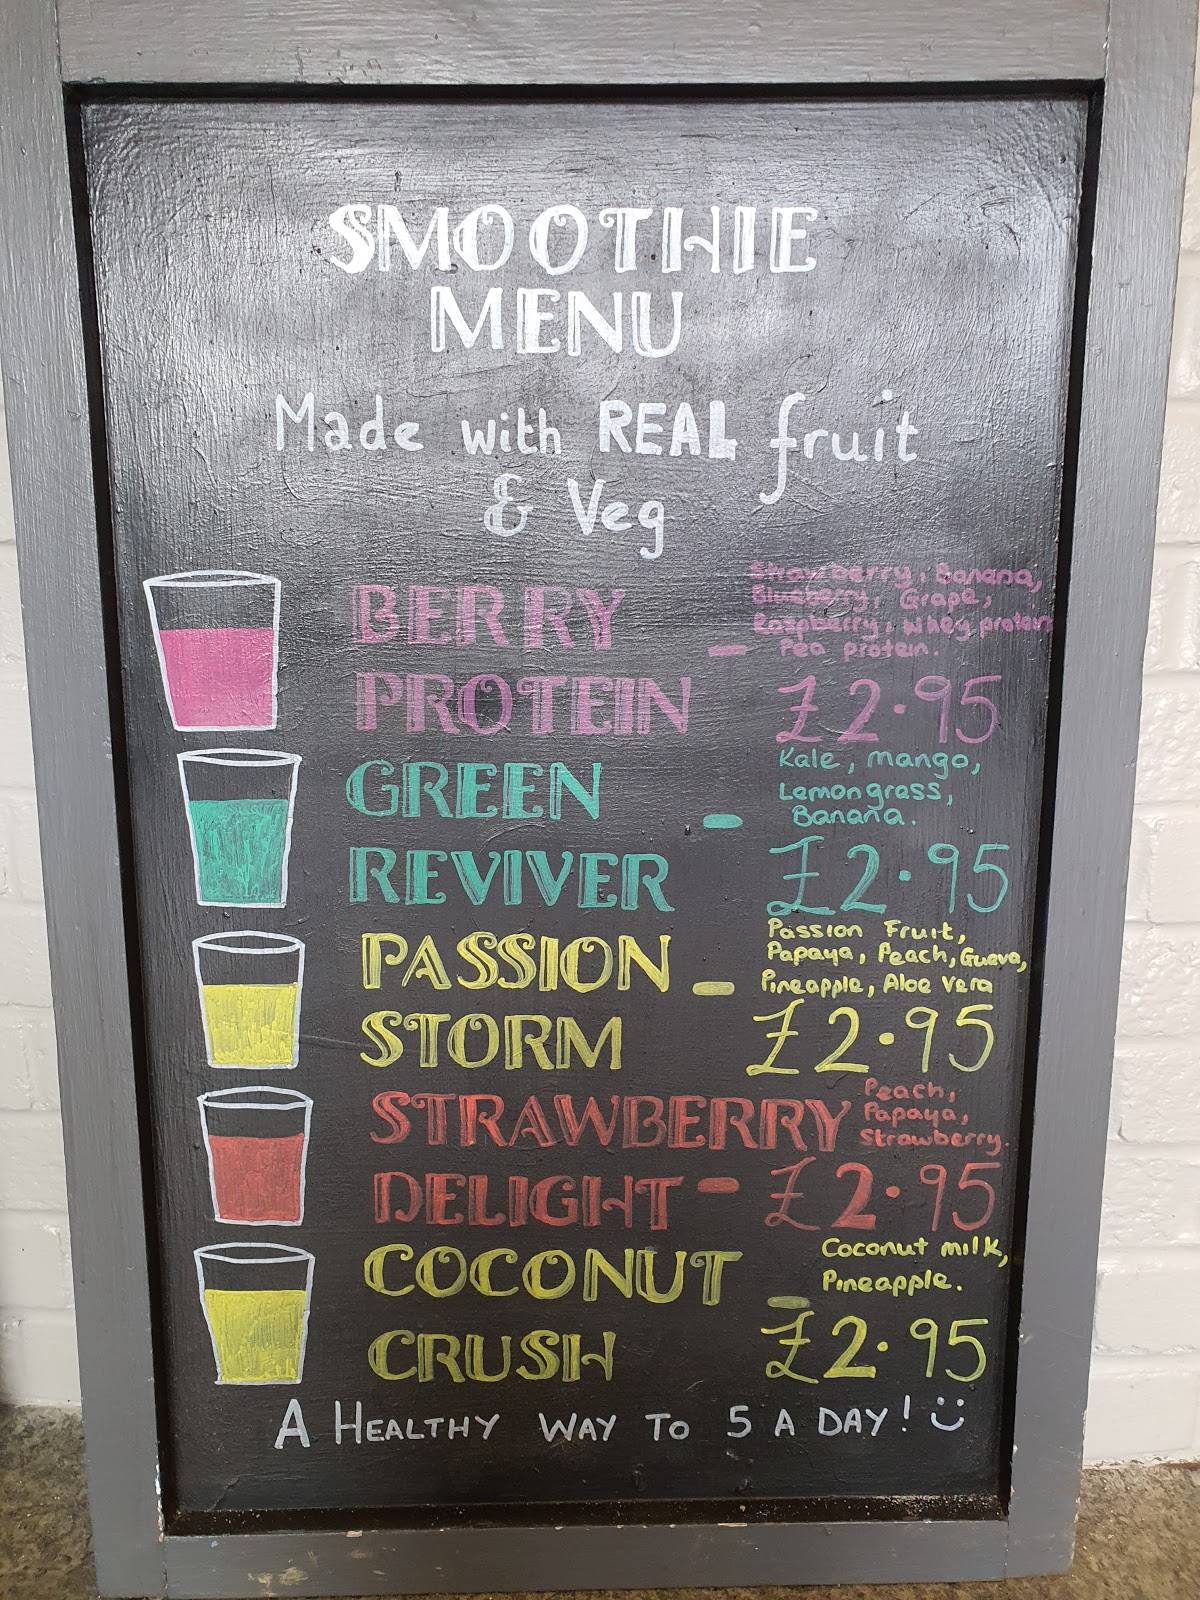 SMOOTHIE
MENU
Made with REAL fruit
& Veg
BERRY
PROTEIN
-
Strawberry, Banana,
Blueberry, Grape,
Raspberry, Whey protein
Pea protein.
£2.95
GREEN
REVIVER
-
Kale, mango,
Lemongrass,
Banana.
£2.95
PASSION
STORM
-
Passion Fruit,
Papaya, Peach, Gueva,
Pineapple, Aloe Vera
£2.95
STRAWBERRY
DELIGHT -
Peach,
Papaya,
Strawberry.
£2.95
COCONUT
CRUSH
-
Coconut milk,
Pineapple.
£2.95
A HEALTHY WAY TO 5 A DAY! :)